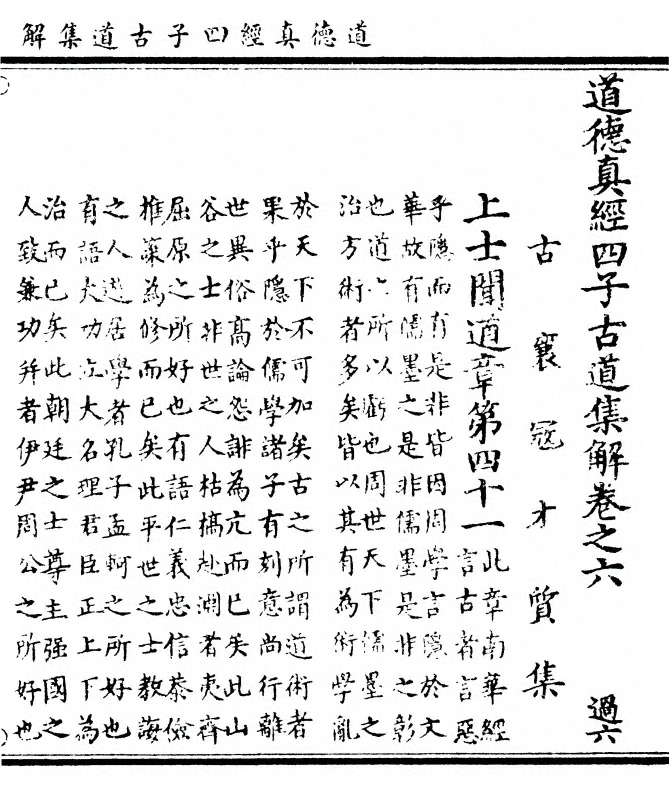 道德真經四子古道集解
道德真經四子古道集解卷之六 過六
古襄寇才質集
上士聞道章第四十一
此章南華經
言古者言惡
乎隱而有是非皆因周學言隱於文
華故有儒墨之是非儒墨是非之彰
也道之所以虧也周世天下儒墨之
治方術者多矣皆以其有為術學亂
於天下不可加矣古之所謂道術者
果乎隱於儒學諸子有刻意尚行離
世異俗高論怨誹為亢而已矣此山
谷之士非世之人枯槁赴淵者夷齊
屈原之所好也有語仁義忠信恭儉
推讓為修而已矣此平世之士教誨
之人遊居學者孔子孟軻之所好也
有語大功立大名理君臣正上下為
治而已矣此朝廷之士尊主强國之
人致兼功并者伊尹周公之所好也